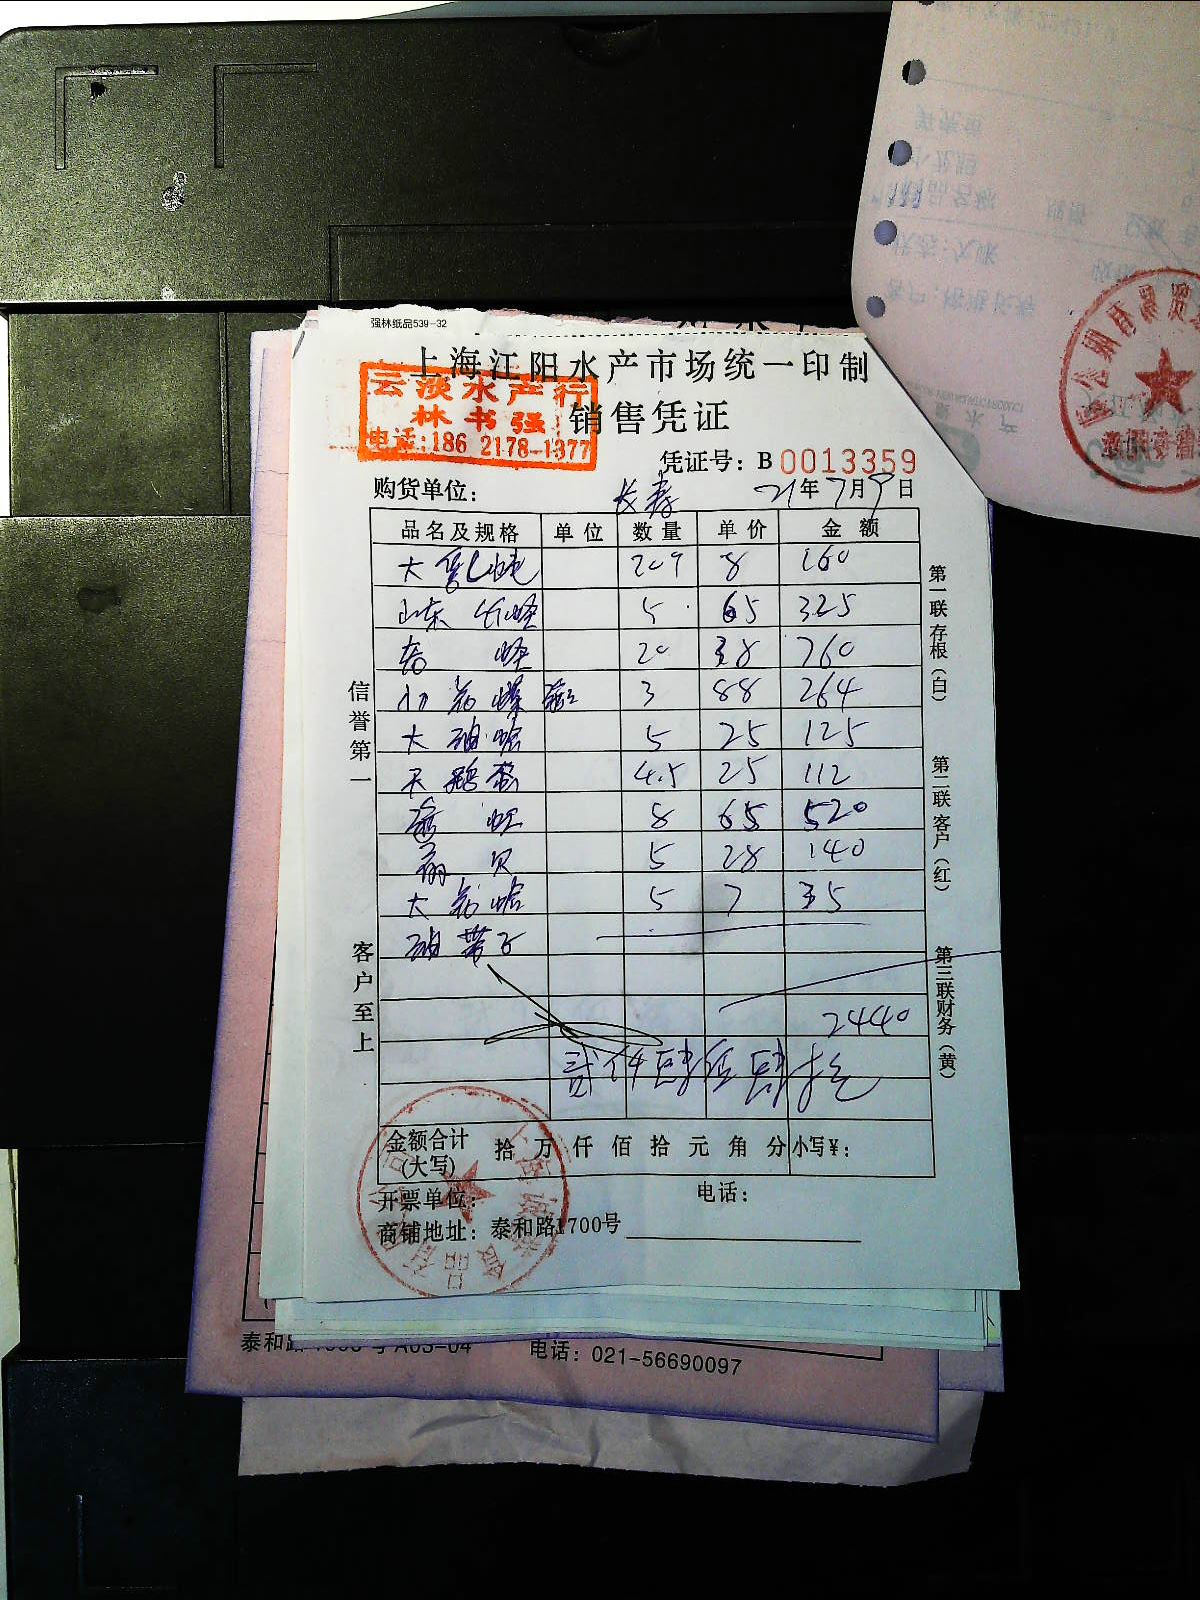 强林纸品539-32
上海江阳水产市场统一印制
云淡水产行
林书强
电话:186 2178-1377
销售凭证
凭证号: B 0013359
购货单位: 长寿 21年7月9日
品名及规格 单位 数量 单价 金额
大 8 160
山东 5 65 325
20 38 760
小花螺 3 88 264
大油蛤 5 25 125
天鹅蛋 4.5 25 112
8 65 520
扇贝 5 28 140
大花蛤 5 7 35
油带子
2440
贰仟肆佰肆拾元
金额合计(大写) 拾 万 仟 佰 拾 元 角 分 小写¥:
开票单位: 电话:
商铺地址: 泰和路1700号
信誉第一
客户至上
第一联存根(白)
第二联客户(红)
第三联财务(黄)
泰和路
电话: 021-56690097